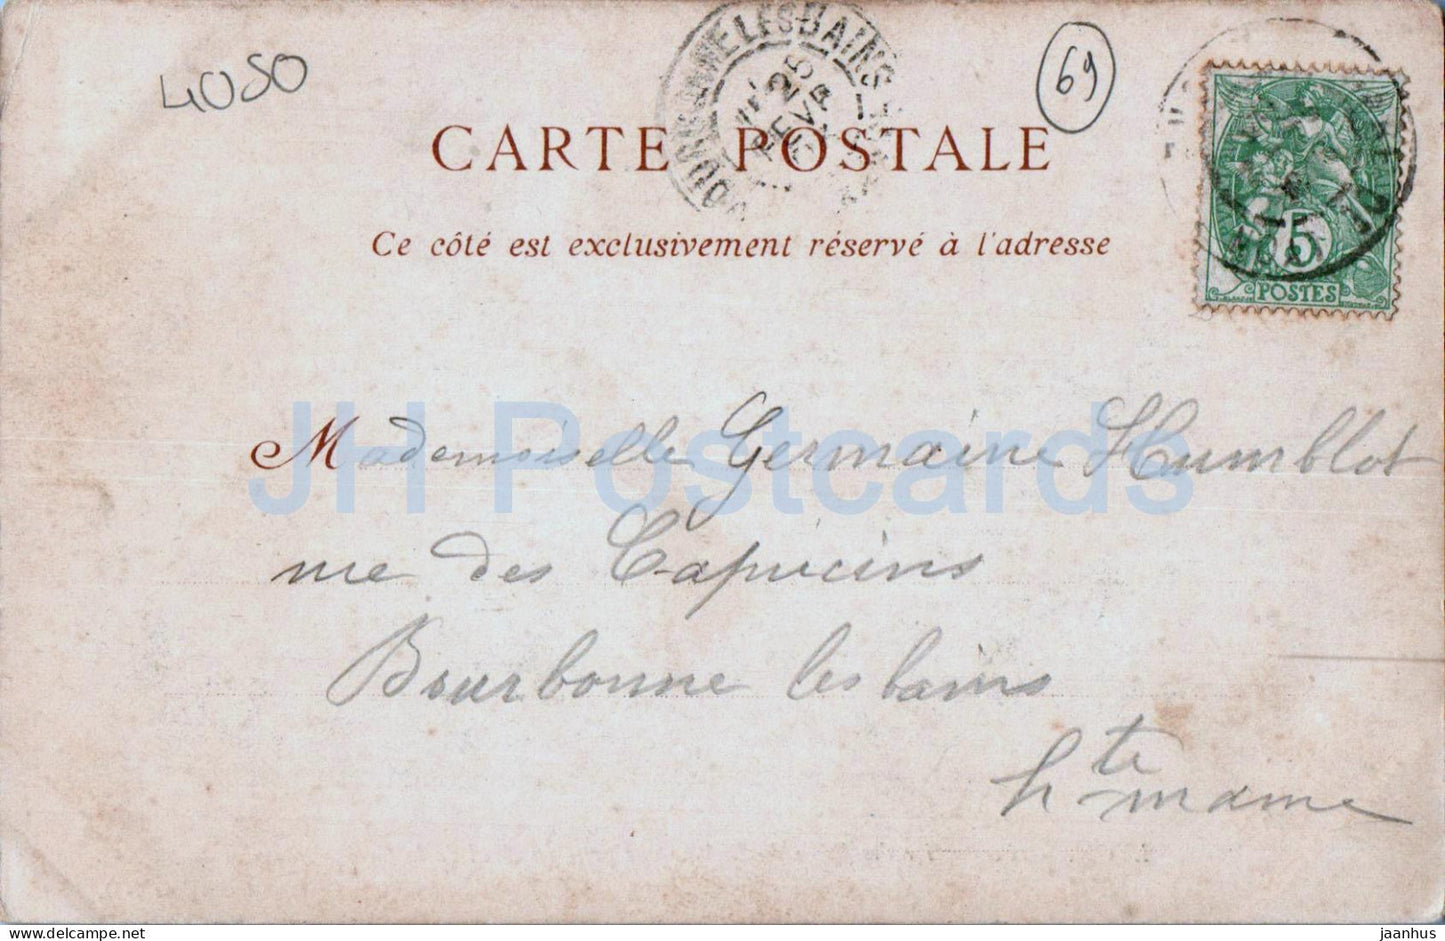 4050
69
BOURBONNE LES BAINS
25
FEVR
CARTE POSTALE
Ce côté est exclusivement réservé à l'adresse
5
POSTES
JH Postcards
Mademoiselle Germaine Humblot
rue des Capucins
Bourbonne les bains
hte marne
www.delcampe.net
jaanhus